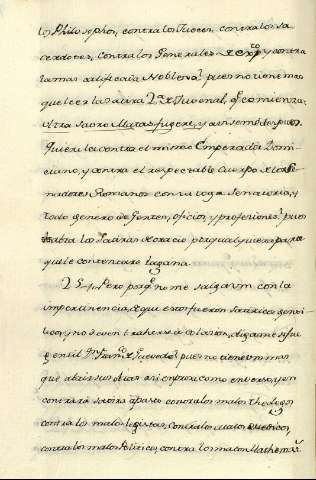 los Philosophos, contra los Jueces, contra los sa
cerdotes, contra los Generales de Exto. y contra
la mas artificada Nobleza? pues no tiene mas
que leer la satira 2ª de Juvenal, qe. comienza:
ultra Sauromatas fugere, y assi se
Quiera contra el mismo Emperador Domi
ciano, y contra el respectable Cuerpo de los Se
nadores Romanos con la toga Senatoria, y
todo genero de Gentes, oficios, y profesiones? pues
las Satiras de Horacio por qualquiera parte
que le contoncare la gana.
25. Pero porqe. no me salgan con la
impertinencia, de que estos fueron Satiricos genti
licos, y no deven traherse à colacion, digame si fue
gentil Dn. Franco. de Quevedo? pues no tienen mas
que abrir sus obras assi en prosa, como en verso, y en
contrará satira à pasto contra los malos Theologos
contra los malos legistas, contra los malos Medicos,
contra los malos Politicos, contra los malos Mathema